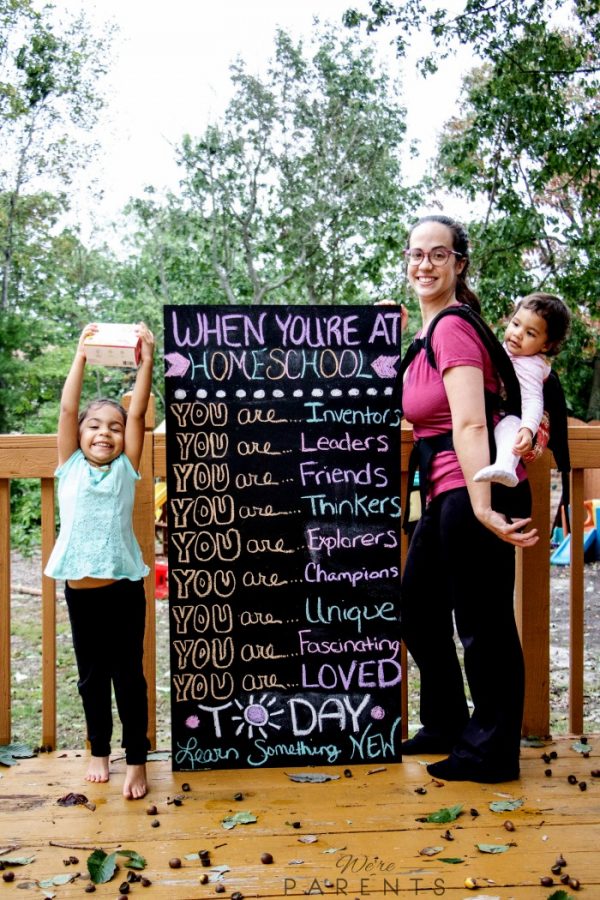 WHEN YOU'RE AT
HOMESCHOOL
YOU are... Inventors
YOU are... Leaders
YOU are... Friends
YOU are... Thinkers
YOU are... Explorers
YOU are... Champions
YOU are... Unique
YOU are... Fascinating
YOU are... LOVED
TODAY
Learn Something NEW
We're
PARENTS